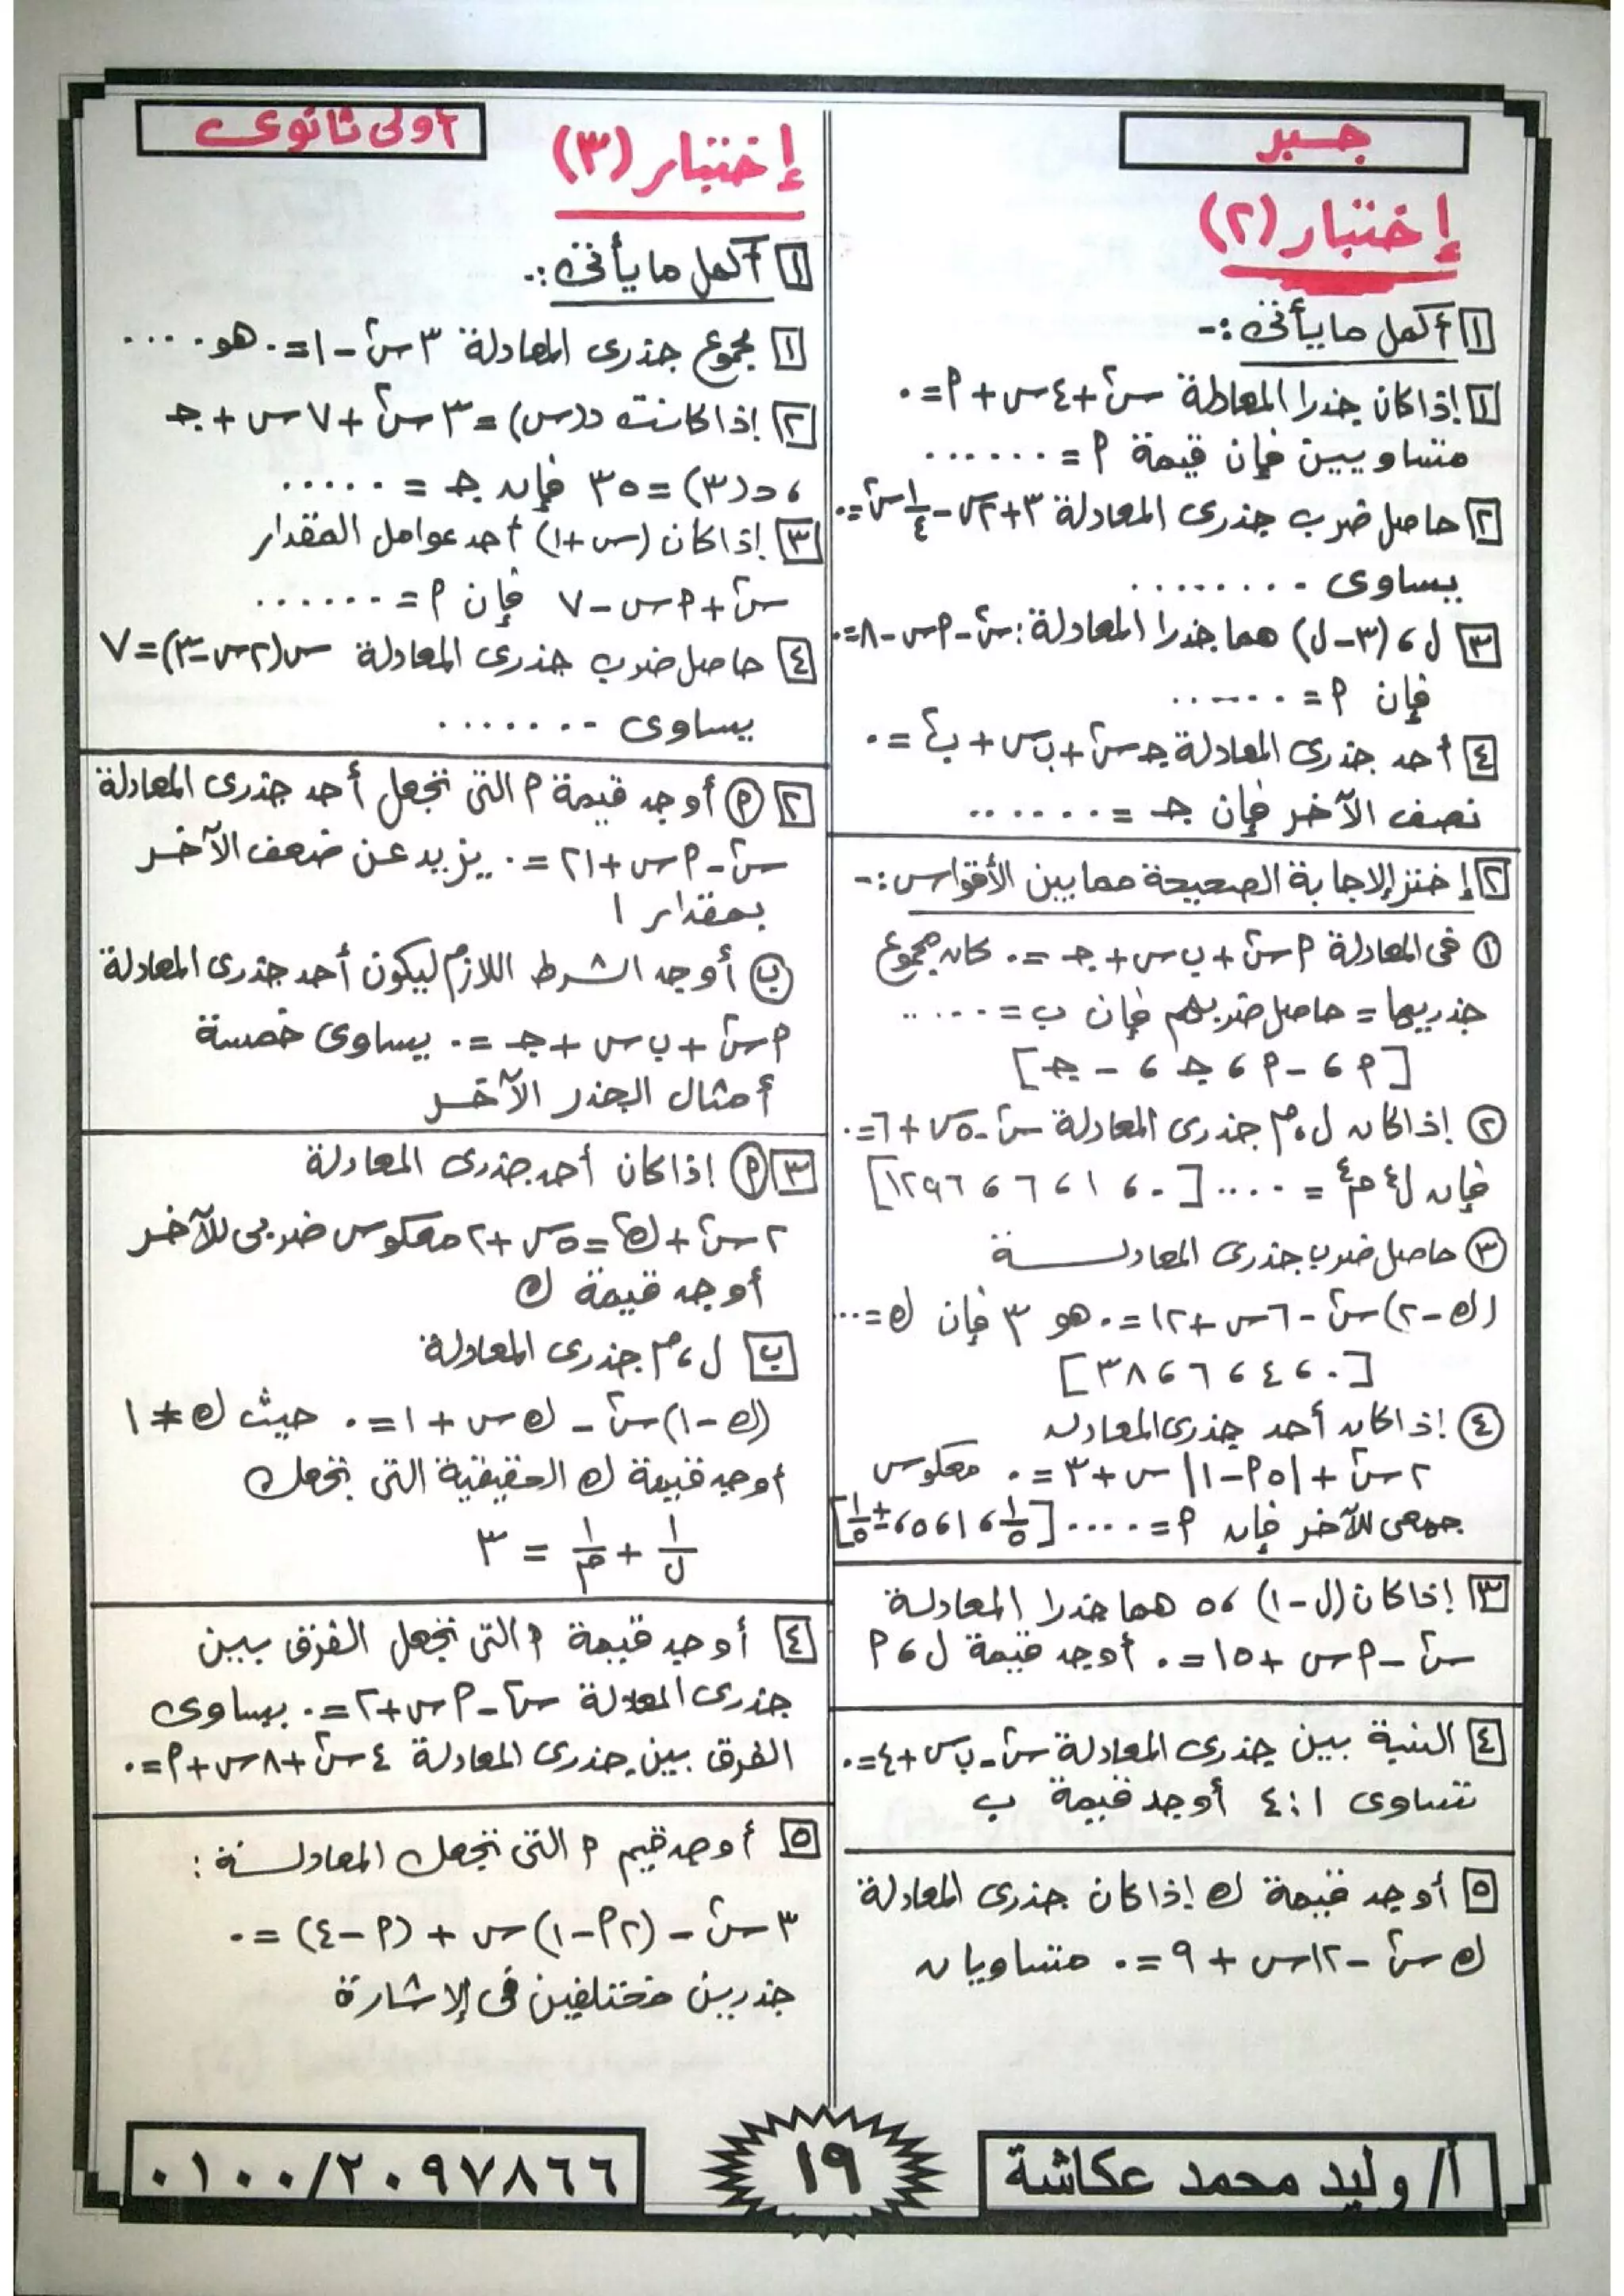 جبر
إختبار (٢)
١ أكمل ما يأتى :-
١ إذا كان جذرا المعادلة س٢ + ٤س + م = ٠
متساويين فإن قيمة م = ......
٢ حاصل ضرب جذرى المعادلة ٣ + ٢س - ١/٤ س٢ = ٠
يساوى ........
٣ ل ، (٣ - ل) هما جذرا المعادلة : س٢ - م س - ٨ = ٠
فإن م = ......
٤ أحد جذرى المعادلة جـ س٢ + ب س + ب٢ = ٠
نصف الآخر فإن جـ = ......
٢ إختر الاجابة الصحيحة مما بين الأقواس :-
١ فى المعادلة م س٢ + ب س + جـ = ٠ كان مجموع
جذريها = حاصل ضربهم فإن ب = .....
[م ، - م ، جـ ، - جـ]
٢ إذا كان ل ، م جذرى المعادلة س٢ - ٥س + ٦ = ٠
فإن ل٤ م٤ = .... [٠ ، ١ ، ٦ ، ١٢٩٦]
٣ حاصل ضرب جذرى المعادلـــة
(ك - ٢) س٢ - ٦س + ١٢ = ٠ هو ٣ فإن ك = ...
[٠ ، ٤ ، ٦ ، ٣٨]
٤ إذا كان أحد جذرى المعادلة
٢س٢ + |٥م - ١| س + ٣ = ٠ معكوس
جمعى للآخر فإن م = .... [١/٥ ، ١ ، ٥ ، ± ١/٥]
٣ إذا كان (ل - ١) ، ٥ هما جذرا المعادلة
س٢ - م س + ١٥ = ٠ أوجد قيمة ل ، م
٤ النسبة بين جذرى المعادلة س٢ - ب س + ٤ = ٠
تساوى ١ : ٤ أوجد قيمة ب
٥ أوجد قيمة ك إذا كان جذرى المعادلة
ك س٢ - ١٢س + ٩ = ٠ متساويان
أولى ثانوى
إختبار (٣)
١ أكمل ما يأتى :-
١ مجموع جذرى المعادلة ٣س٢ - ١ = ٠ هو ....
٢ إذا كانت د(س) = ٣س٢ + ٧س + جـ
، د(٣) = ٣٥ فإن جـ = .....
٣ إذا كان (س + ١) أحد عوامل المقدار
س٢ + م س - ٧ فإن م = ......
٤ حاصل ضرب جذرى المعادلة س(٢س - ٣) = ٧
يساوى .......
٢ م أوجد قيمة م التى تجعل أحد جذرى المعادلة
س٢ - م س + ٢١ = ٠ يزيد عن ضعف الآخر
بمقدار ١
ب أوجد الشرط اللازم ليكون أحد جذرى المعادلة
م س٢ + ب س + جـ = ٠ يساوى خمسة
أمثال الجذر الآخر
٣ م إذا كان أحد جذرى المعادلة
٢س٢ + ك٢ = ٥س + ٢ معكوس ضربى للآخر
أوجد قيمة ك
ب ل ، م جذرى المعادلة
(ك - ١) س٢ - ك س + ١ = ٠ حيث ك ≠ ١
أوجد قيمة ك الحقيقية التى تجعل
١/ل + ١/م = ٣
٤ أوجد قيمة م التى تجعل الفرق بين
جذرى المعادلة س٢ - م س + ٢ = ٠ يساوى
الفرق بين جذرى المعادلة ٤س٢ + ٨س + م = ٠
٥ أوجد قيم م التى تجعل المعادلـــة :
٣س٢ - (٢م - ١) س + (م - ٤) = ٠
جذرين مختلفين فى الاشارة
أ/ وليد محمد عكاشة
١٩
٠١٠٠/٢٠٩٧٨٦٦